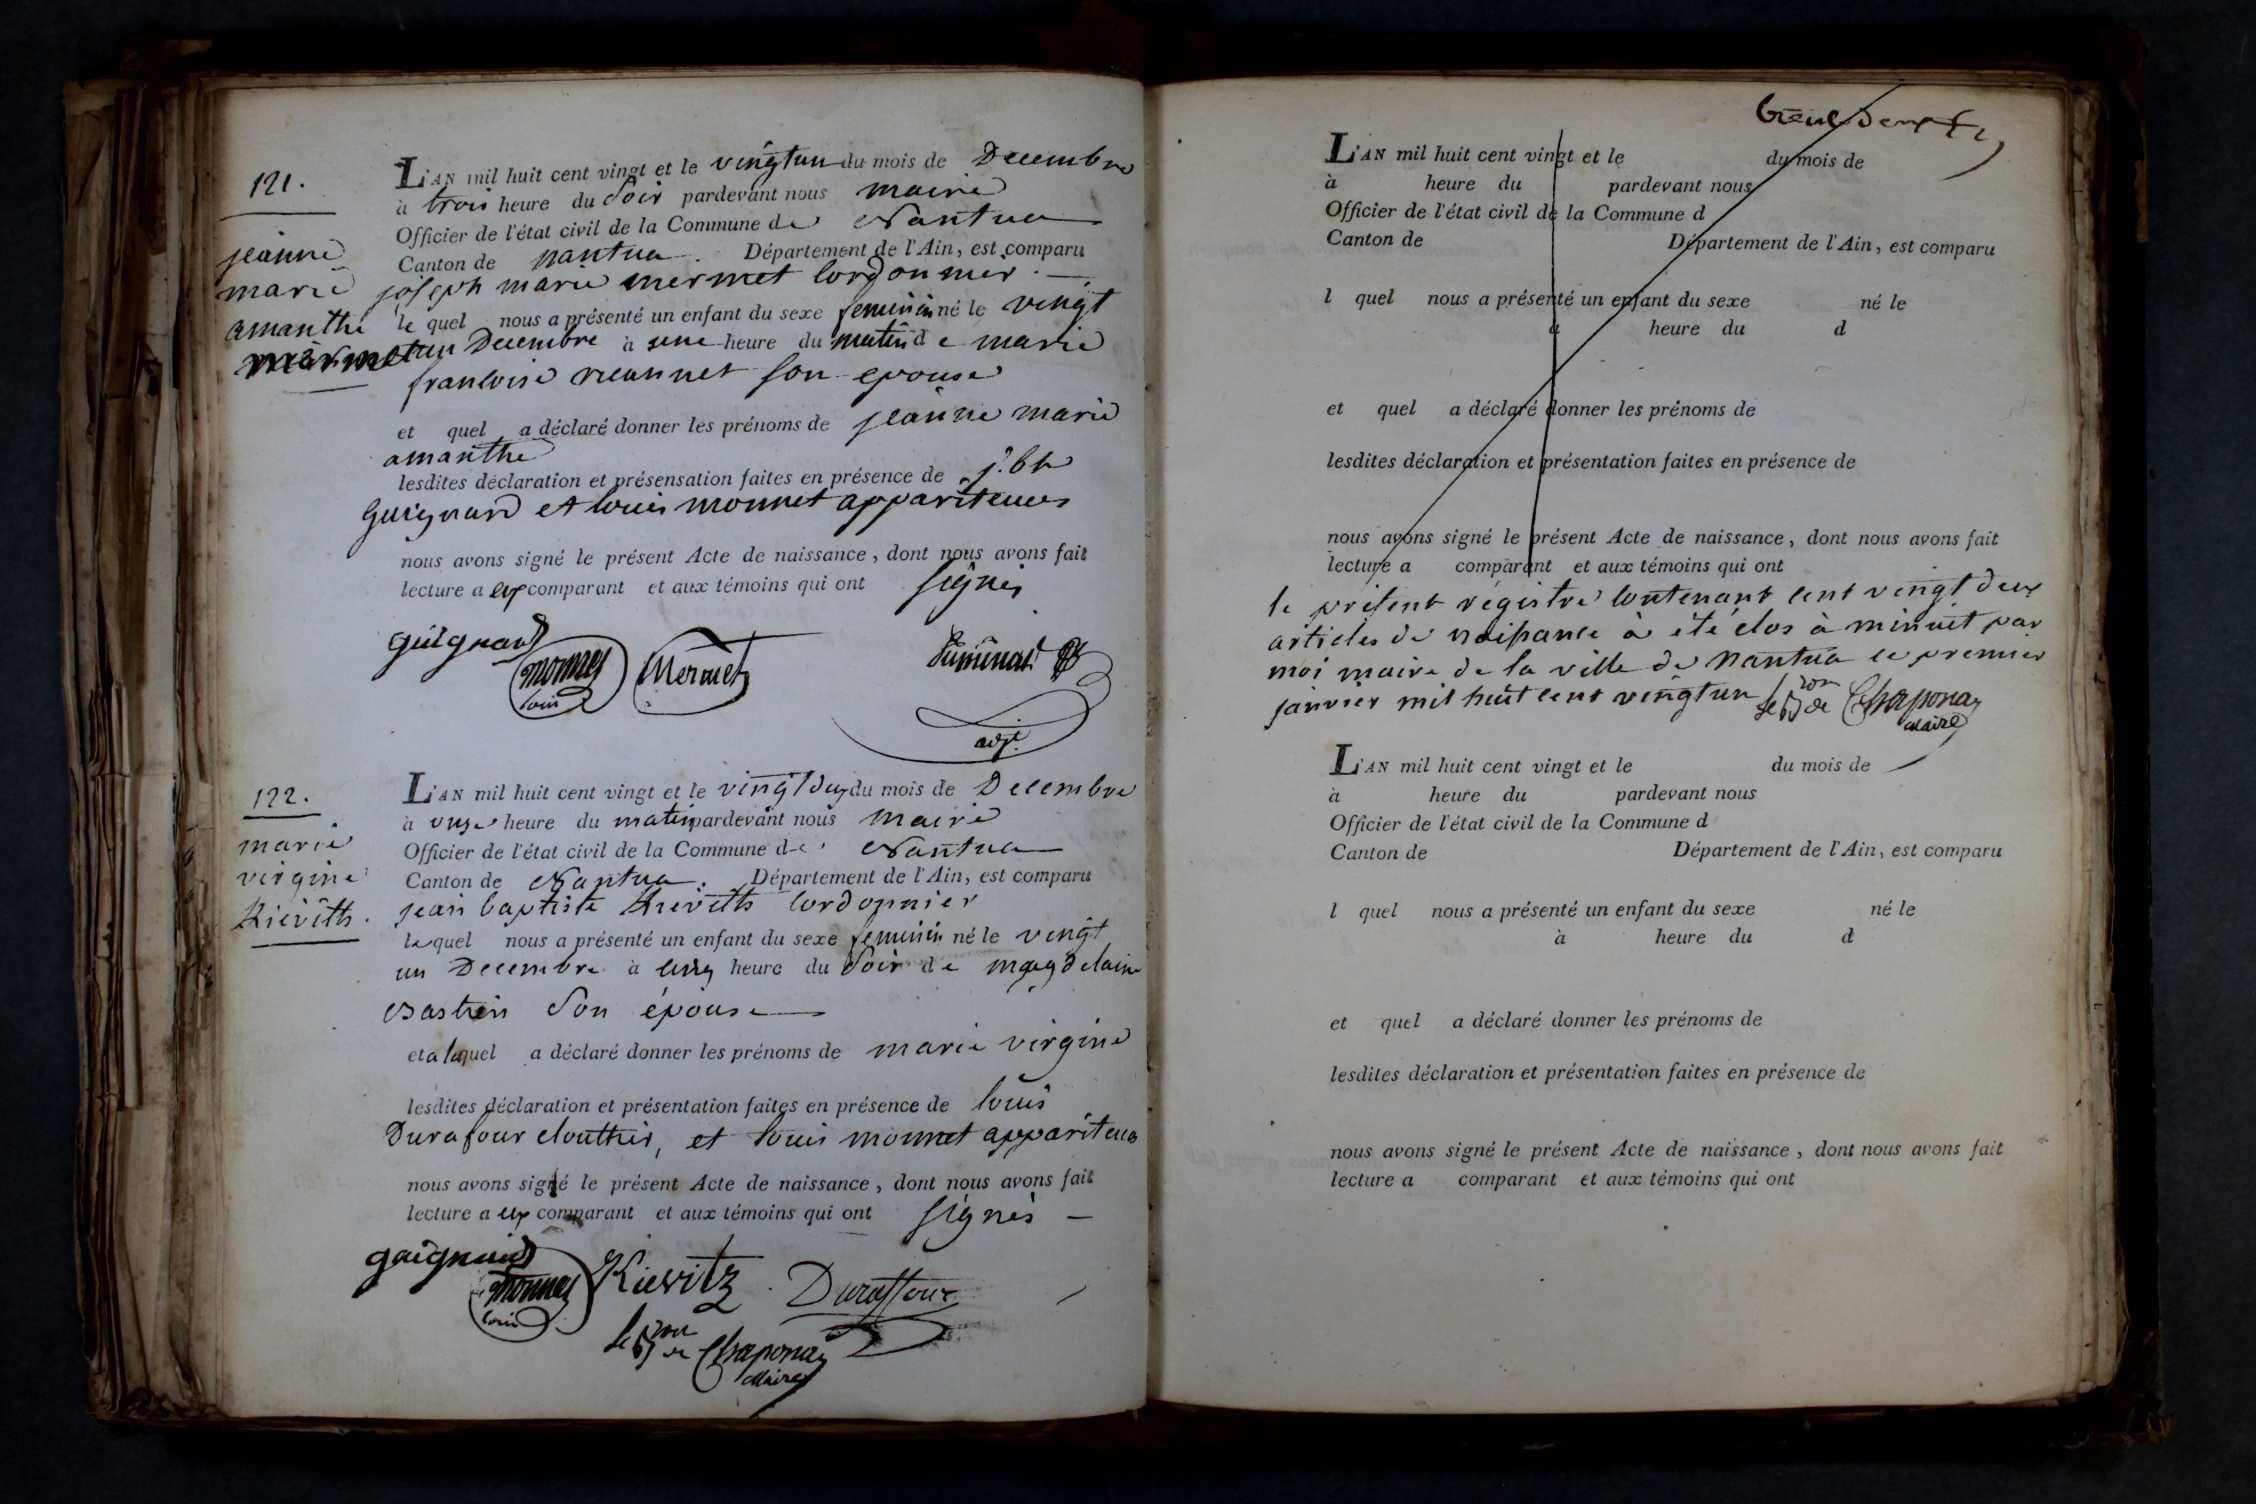 121.
jeanne
marie
amanthe
mermet
L'AN mil huit cent vingt et le vingtun du mois de Decembre
à trois heure du soir pardevant nous maire
Officier de l'état civil de la Commune de Nantua
Canton de nantua. Département de l'Ain, est comparu
joseph marie mermet cordonnier
le quel nous a présenté un enfant du sexe feminin né le vingt
un Decembre à une heure du matin de marie
francoise son epouse
et quel a déclaré donner les prénoms de jeanne marie
amanthe
lesdites déclaration et présensation faites en présence de j. bte
Guignard et louis monnet appariteurs
nous avons signé le présent Acte de naissance, dont nous avons fait
lecture a ux comparant et aux témoins qui ont signés
guignard
monnet
louis
Mermet
adjt.
122.
marie
virgine
Kieviths.
L'AN mil huit cent vingt et le vingt deux du mois de Decembre
à onze heure du matin pardevant nous maire
Officier de l'état civil de la Commune de Nantua
Canton de Nantua. Département de l'Ain, est comparu
jean baptiste Kieviths cordonnier
le quel nous a présenté un enfant du sexe feminin né le vingt
un Decembre à cinq heure du soir de magdelaine
Bastien son épouse
et a lequel a déclaré donner les prénoms de marie virgine
lesdites déclaration et présentation faites en présence de louis
Durafour cloutier, et louis monnet appariteur
nous avons signé le présent Acte de naissance, dont nous avons fait
lecture a ux comparant et aux témoins qui ont signés
guignard
monnet
louis
Kievitz
Duraffour
le Bon de Chaponay
Maire
L'AN mil huit cent vingt et le du mois de
à heure du pardevant nous
Officier de l'état civil de la Commune d
Canton de Département de l'Ain, est comparu
l quel nous a présenté un enfant du sexe né le
à heure du d
et quel a déclaré donner les prénoms de
lesdites déclaration et présentation faites en présence de
nous avons signé le présent Acte de naissance, dont nous avons fait
lecture a comparant et aux témoins qui ont
le présent régistre contenant cent vingt deux
articles de naissance à été clos à minuit par
moi maire de la ville de Nantua le premier
janvier mil huit cent vingtun le Bon de Chaponay
Maire
L'AN mil huit cent vingt et le du mois de
à heure du pardevant nous
Officier de l'état civil de la Commune d
Canton de Département de l'Ain, est comparu
l quel nous a présenté un enfant du sexe né le
à heure du d
et quel a déclaré donner les prénoms de
lesdites déclaration et présentation faites en présence de
nous avons signé le présent Acte de naissance, dont nous avons fait
lecture a comparant et aux témoins qui ont